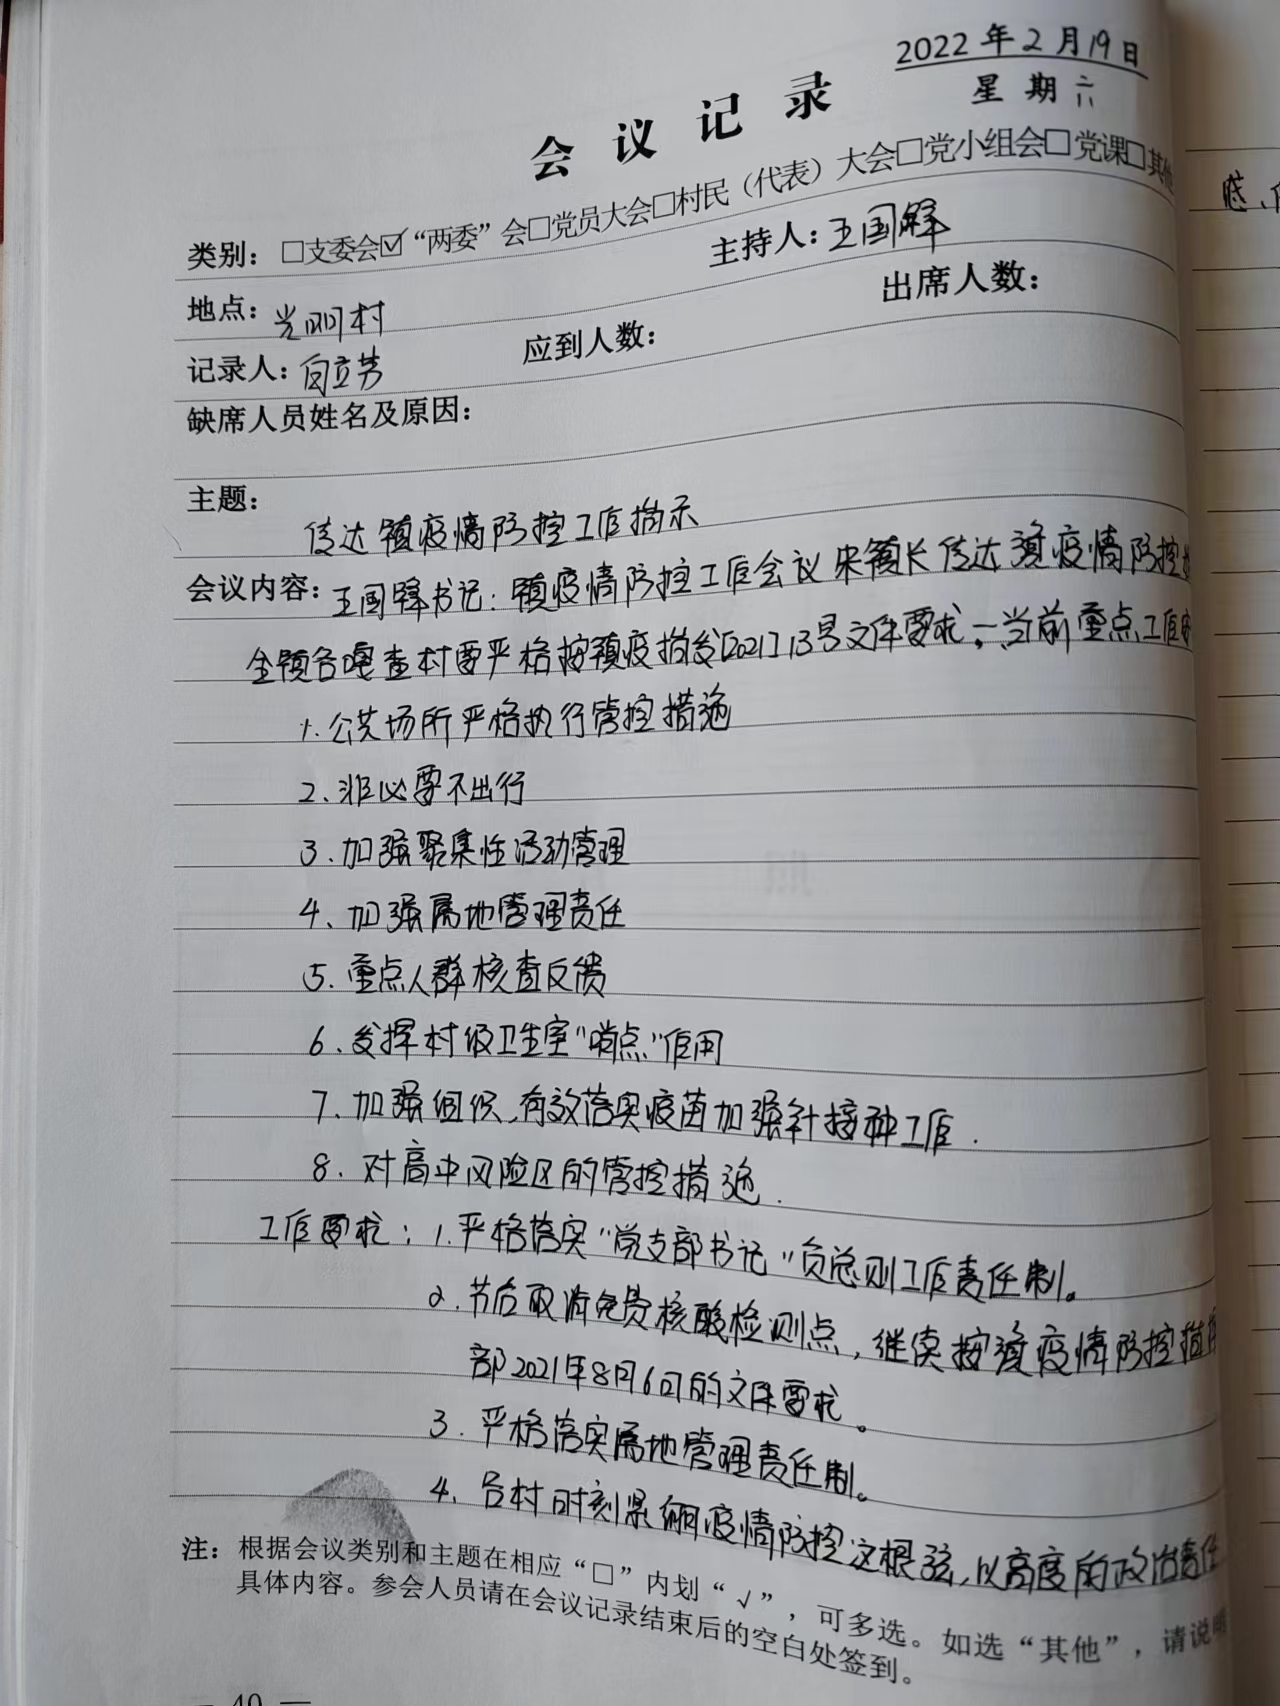 2022年2月19日
星期六
会议记录
类别：□支委会☑“两委”会□党员大会□村民（代表）大会□党小组会□党课□其他
地点：光明村 主持人：王国锋
记录人：白立芳 应到人数： 出席人数：
缺席人员姓名及原因：
主题：
传达镇疫情防控工作指示
会议内容：王国锋书记：镇疫情防控工作会议宋镇长传达 疫情防控
全镇各嘎查村要严格按镇疫指发[2021]13号文件要求。一、当前重点工作
1.公共场所严格执行管控措施
2、非必要不出行
3.加强聚集性活动管理
4、加强属地管理责任
5.重点人群核查反馈
6、发挥村级卫生室“哨点”作用
7、加强组织，有效落实疫苗加强针接种工作.
8、对高中风险区的管控措施.
工作要求：1.严格落实“党支部书记”负总则工作责任制。
2.节后取消免费核酸检测点，继续按 疫情防控指
部2021年8月6日的文件要求。
3.严格落实属地管理责任制。
4、各村时刻紧绷疫情防控这根弦，以高度的政治责任
注：根据会议类别和主题在相应“□”内划“√”，可多选。如选“其他”，请说明
具体内容。参会人员请在会议记录结束后的空白处签到。
— 40 —